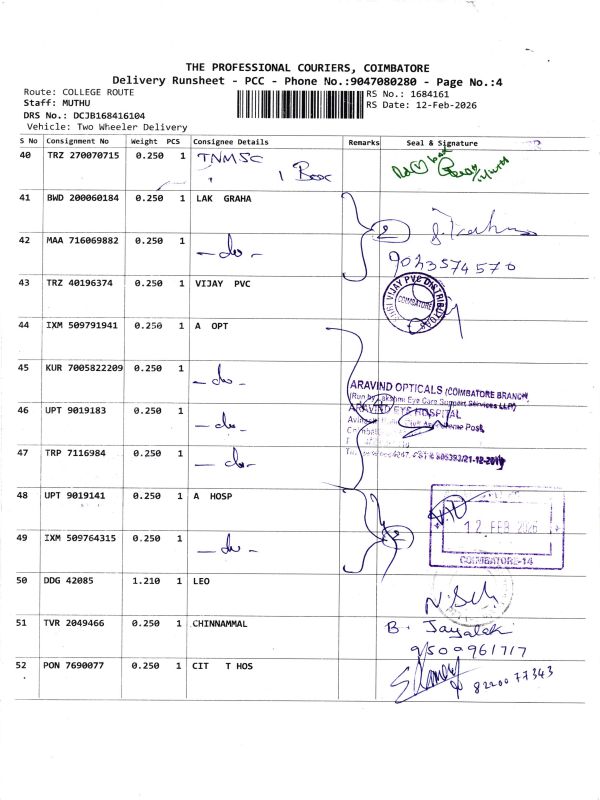 THE PROFESSIONAL COURIERS, COIMBATORE
Delivery Runsheet - PCC - Phone No.:9047080280 - Page No.:4
Route: COLLEGE ROUTE
Staff: MUTHU
DRS No.: DCJB168416104
Vehicle: Two Wheeler Delivery
RS No.: 1684161
RS Date: 12-Feb-2026
S No Consignment No Weight PCS Consignee Details Remarks Seal & Signature
40 TRZ 270070715 0.250 1 TNMSC
1 Box
41 BWD 200060184 0.250 1 LAK GRAHA
42 MAA 716069882 0.250 1 - do - 2
9023574570
43 TRZ 40196374 0.250 1 VIJAY PVC
SHRI VIJAY PVC DISTRIBUTORS
COIMBATORE
44 IXM 509791941 0.250 1 A OPT
45 KUR 7005822209 0.250 1 - do -
ARAVIND OPTICALS (COIMBATORE BRANCH)
(Run by Lakshmi Eye Care Support Services LLP)
46 UPT 9019183 0.250 1 - do - 4
ARAVIND EYE HOSPITAL
Post,
47 TRP 7116984 0.250 1 - do -
48 UPT 9019141 0.250 1 A HOSP
12 FEB 2026
49 IXM 509764315 0.250 1 - do - 2
COIMBATORE-14
50 DDG 42085 1.210 1 LEO
51 TVR 2049466 0.250 1 CHINNAMMAL
B. Jayalaki
9500961717
52 PON 7690077 0.250 1 CIT T HOS
8220077343